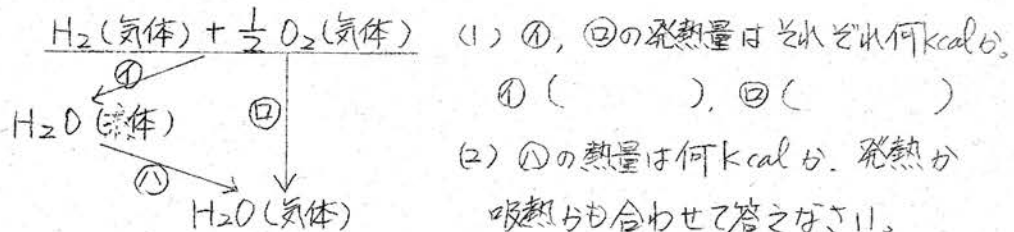 H₂(気体) + 1/2 O₂(気体)
㋑
㋺
H₂O (液体)
㋩
H₂O(気体)
(1) ㋑, ㋺の発熱量は それぞれ何kcalか。
㋑ (　　　), ㋺ (　　　)
(2) ㋩の熱量は何kcalか. 発熱か
吸熱かも合わせて答えなさい。